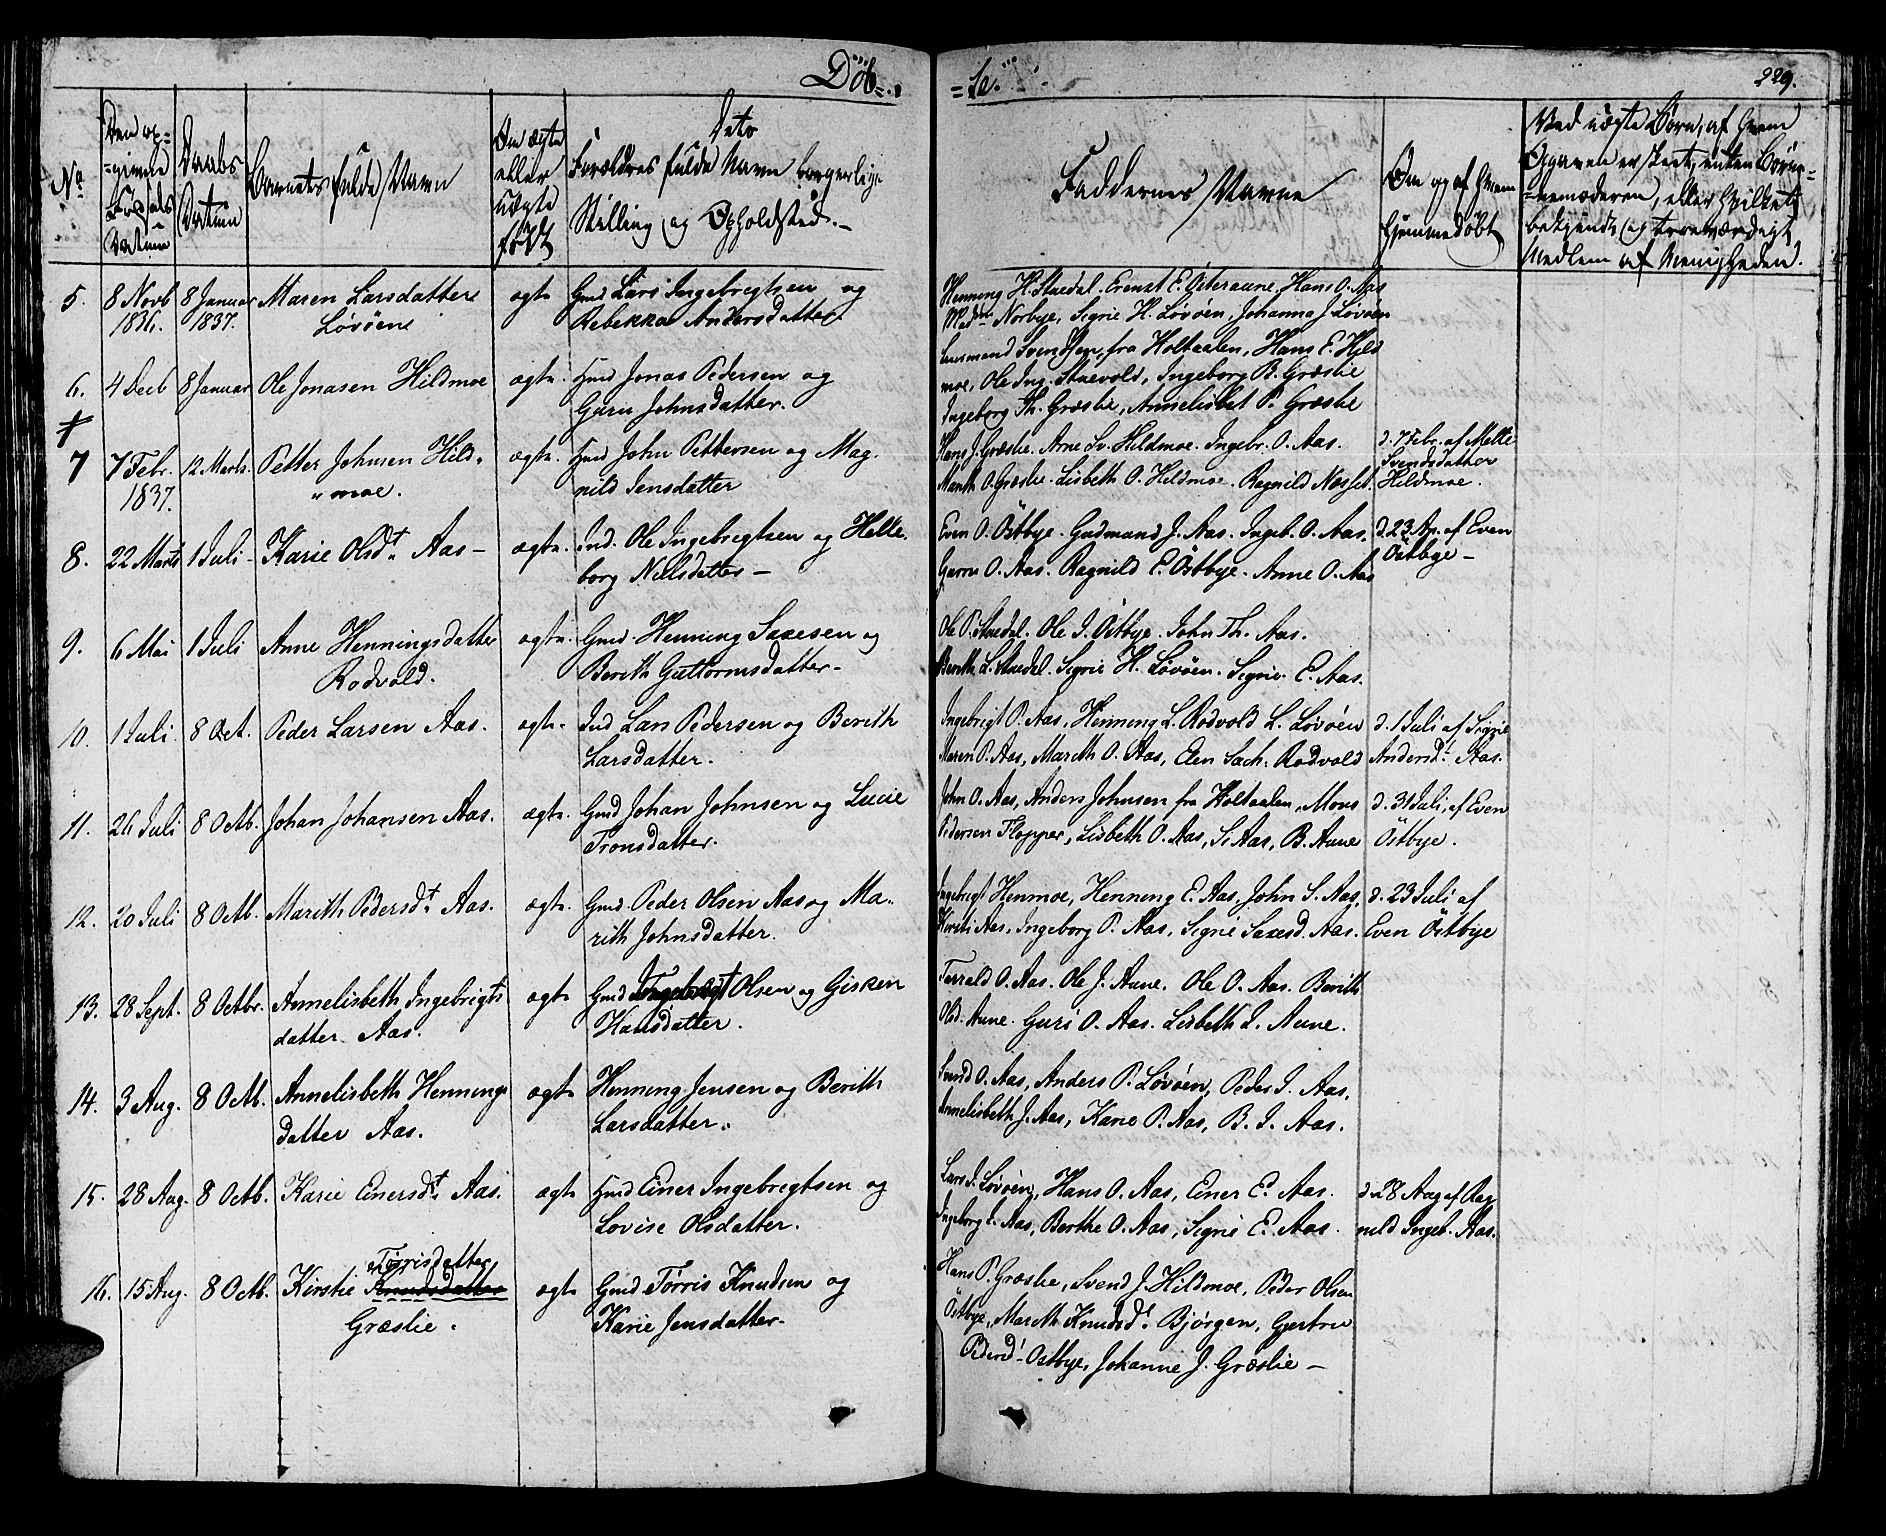 Döb=
=te.
229.
No
Den op=
=givende
Fødsels
Datum
Daabs
Datum
Barnets fulde Navn
Om ægte
eller
uægte
født
Dets
Forældres fulde Navn borgerlige
Stilling og Opholdsted.
Faddernes Navne
Om og af hvem
hjemmedøbt
Ved uægte Børn, af hvem
Opgaven er skeet, enten Barne=
=nemoderen, eller hvilket
bekjendt og troeværdigt
Medlem af Menigheden.
5. 8 Novb 8 Januar Maren Larsdatter ægte Gmd Lars Ingebregtsen og
1836. 1837. Løvöen Rebekka Andersdatter
Henning H. Stuedal. Erenst E. Österaune, Hans O. Aas
Madm Norbye, Sigrie H. Løvöen, Johanna J. Løvöen
6. 4 Decb 8 Januar Ole Jonasen Hildmoe ægte. Hmd Jonas Pedersen og
Guru Johnsdatter.
Lensmand Svendsen, fra Holtaalen, Hans E. Hild
moe, Ole Ing. Stuevold, Ingeborg B. Græslie
Ingeborg Th. Græslie, Annelisbet P. Græslie
7 7 Febr. 12 Marts. Petter Johnsen Hild= ægte. Hmd John Pettersen og Mag.
1837. "moe. nild Jensdatter
Hans J. Græslie. Arne Sv. Hildmoe. Ingebr. O. Aas.
Marith O. Græslie. Lisbeth O. Hildmoe. Ragnild Næsset.
d. 7 Febr. af Mette
Svendsdatter
Hildmoe.
8. 22 Marts 1 Juli - Karie Olsdt. Aas - ægte. Ind. Ole Ingebregtsen og Helle.
borg Nielsdatter -
Even O. Östbye. Gudmand J. Aas. Ingeb. O. Aas.
Guru O. Aas. Ragnild E. Östbye. Anne O. Aas
d. 23 Ap. af Even
Östbye -
9. 6 Mai 1 Juli Anne Henningsdatter ægte. Gmd. Henning Saxesen og
Rodvold. Berith Guttormsdatter -
Ole P. Stuedal. Ole I. Östbye. John Th. Aas.
Berith L. Stuedal. Sigrie H. Løvöen. Sigrie E. Aas.
10. 1 Juli 8 Oct. Peder Larsen Aas. ægte. Ind Lars Pedersen og Berith
Larsdatter.
Ingebrigt P. Aas, Henning L. Rodvold L. Løvöen
Maren P. Aas, Marith O. Aas, Elen Sach. Rodvold
d. 1 Juli af Sigrie
Andersdt. Aas.
11. 26 Juli 8 Octb. Johan Johansen Aas. ægte. Gmd Johan Johnsen og Lucie
Tronsdatter.
John O. Aas, Anders Johnsen fra Holtaalen, Mons
Pedersen Flopper, Lisbeth O. Aas, S. Aas, B. Aune
d. 31 Juli, af Even
Östbye.
12. 20 Juli 8 Octb. Marith Pedersdt. Aas. ægte. Gmd. Peder Olsen Aas og Ma=
rith Johnsdatter.
Ingebrigt Henmoe, Henning E. Aas, John S. Aas,
Kirsti Aas, Ingeborg P. Aas, Sigrie Saxesd. Aas.
d. 23 Juli af
Even Östbye
13. 28 Sept. 8 Octbr. Annelisbeth Ingebrigts ægte Gmd Ingebrigt Olsen og Gisken
datter Aas. Hansdatter.
Torrald O. Aas. Ole J. Aune. Ole O. Aas. Berith
Olsd. Aune. Guri O. Aas. Lisbeth I. Aune.
14. 3 Aug. 8 Octb. Annelisbeth Hennings ægte Henning Jensen og Berith
datter Aas. Larsdatter.
Svend O. Aas, Anders P. Løvöen, Peder I. Aas,
Annelisbeth J. Aas, Karie P. Aas, B. I. Aas.
15. 28 Aug. 8 Octb. Karie Einersdt. Aas. ægte Hmd Einer Ingebregtsen og
Lovise Olsdatter.
Lars J. Løvöen, Hans O. Aas, Einer E. Aas.
Ingeborg I. Aas, Berthe O. Aas, Sigrie E. Aas.
d. 28 Aug af Rag
nild Ingeb. Aas.
Törrisdatter
16. 15 Aug. 8 Octb. Kirstie Knudsdatter ægte Gmd Törris Knudsen og
Græslie. Karie Jensdatter.
Hans P. Græslie, Svend J. Hildmoe, Peder Olsen
Östbye, Marith Knudsd. Bjørgen, Gjertru
Pedersd. Östbye, Johanne J. Græslie -